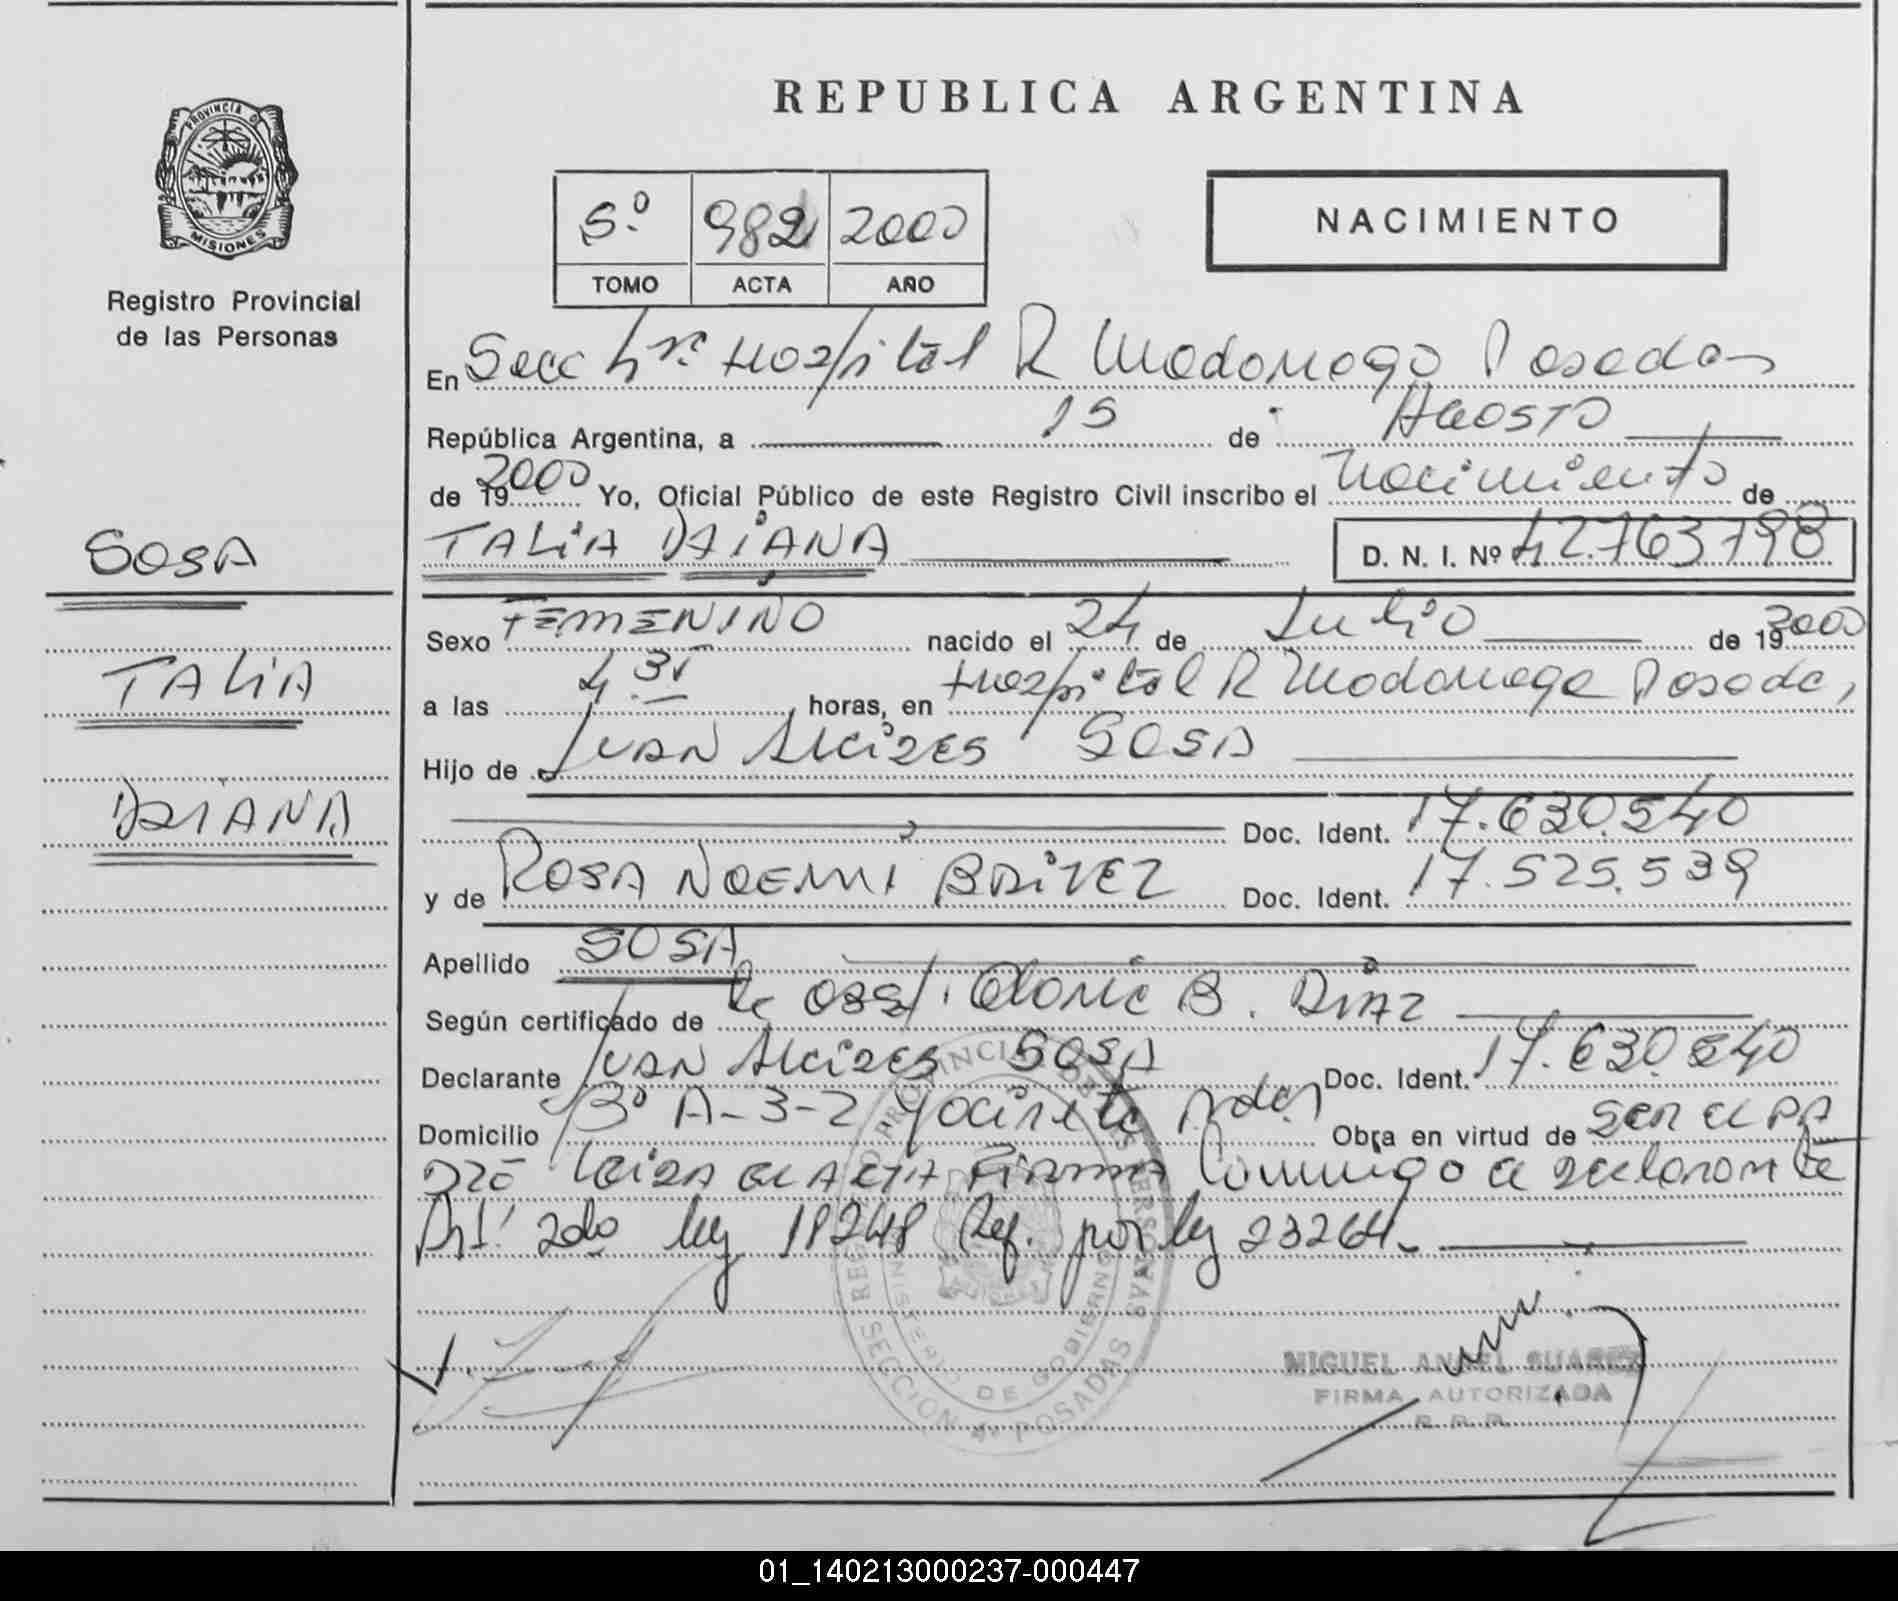 REPUBLICA ARGENTINA
PROVINCIA D
MISIONES
Registro Provincial
de las Personas
5º 982 2000
TOMO ACTA AÑO
NACIMIENTO
En Secc 4ª Hospital R Madariaga Posadas
República Argentina, a 15 de Agosto
de 19 2000 Yo, Oficial Público de este Registro Civil inscribo el Nacimiento de
TALIA DAIANA D. N. I. Nº 42.763.798
SOSA
TALIA
DAIANA
Sexo FEMENINO nacido el 24 de Julio de 19 2000
a las 4 35 horas, en Hospital R Madariaga Posadas
Hijo de JUAN ALCIDES SOSA
Doc. Ident. 17.630.540
y de ROSA NOEMI BRITEZ Doc. Ident. 17.525.539
Apellido SOSA
Según certificado de la Obst. Gloria B. DIAZ
Declarante JUAN ALCIDES SOSA Doc. Ident. 17.630.540
Domicilio Bº A-3-2 Yacireta Pdas Obra en virtud de SER EL PA
DRE Leida EL ACTA FIRMA Conmigo el declarante
Art. 2do ley 18248 Ref. por ley 23264.
PROVINCIAL DE LAS PERSONAS
MINISTERIO DE GOBIERNO
SECCION 4ª POSADAS
MIGUEL ANGEL SUAREZ
FIRMA AUTORIZADA
R. P. P.
01_140213000237-000447